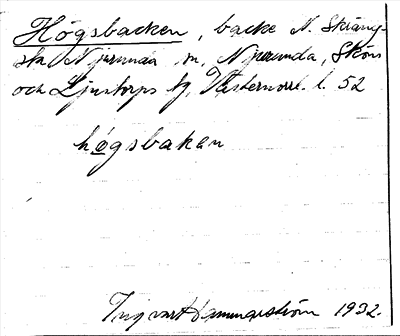 Högsbacken, backe N. Skäng-
sta Njurunda sn, Njurunda, Sköns
och Ljustorps tg, Västernorrl. l. 52
högsbakan
Ingvar Hammarström 1932.